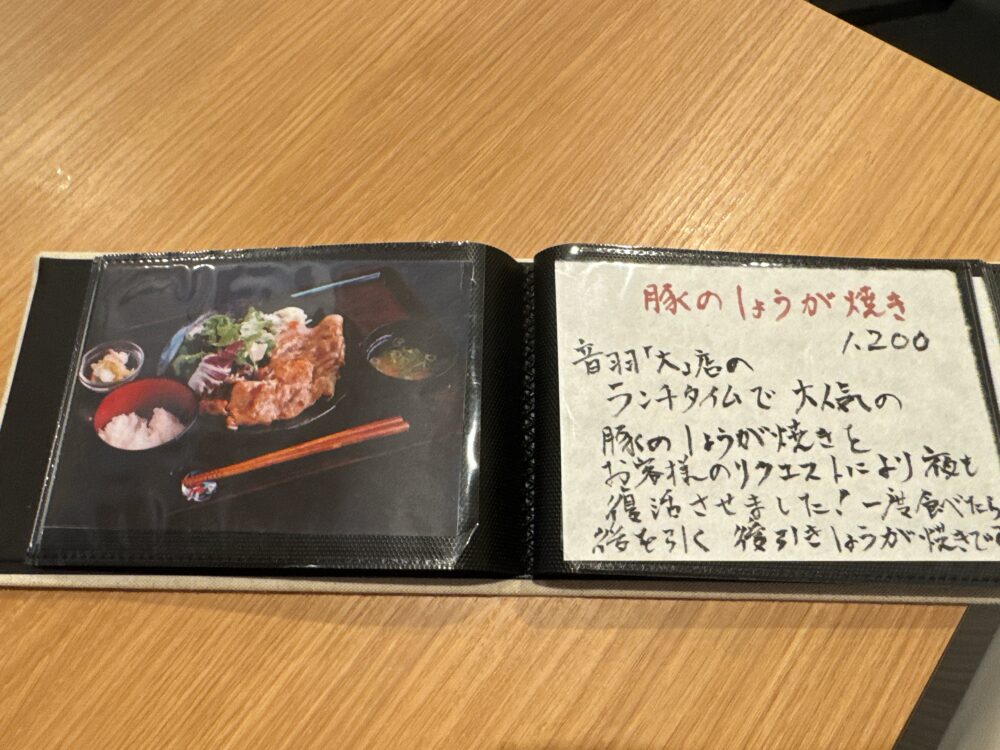 豚のしょうが焼き
1.200
音羽「大」店の
ランチタイムで大人気の
豚のしょうが焼きを
お客様のリクエストにより夜も
復活させました!一度食べたら
後を引く 後引きしょうが焼きで